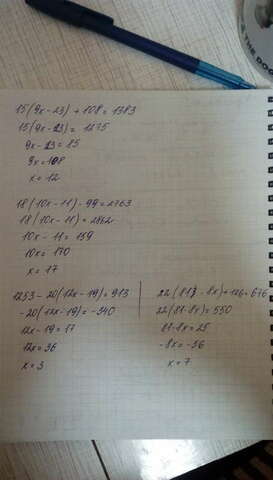 THE DOO
15(9x-23)+108=1383
15(9x-23)=1275
9x-23=85
9x=108
x=12
18(10x-11)-99=2763
18(10x-11)=2862
10x-11=159
10x=170
x=17
1253-20(12x-19)=913
-20(12x-19)=-340
12x-19=17
12x=36
x=3
22(81-8x)+126=676
22(81-8x)=550
81-8x=25
-8x=-56
x=7